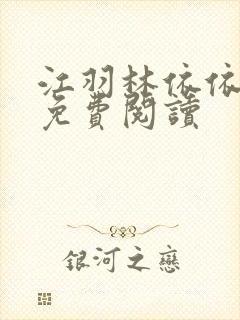 江羽林依依
免費閱讀
銀河之戀